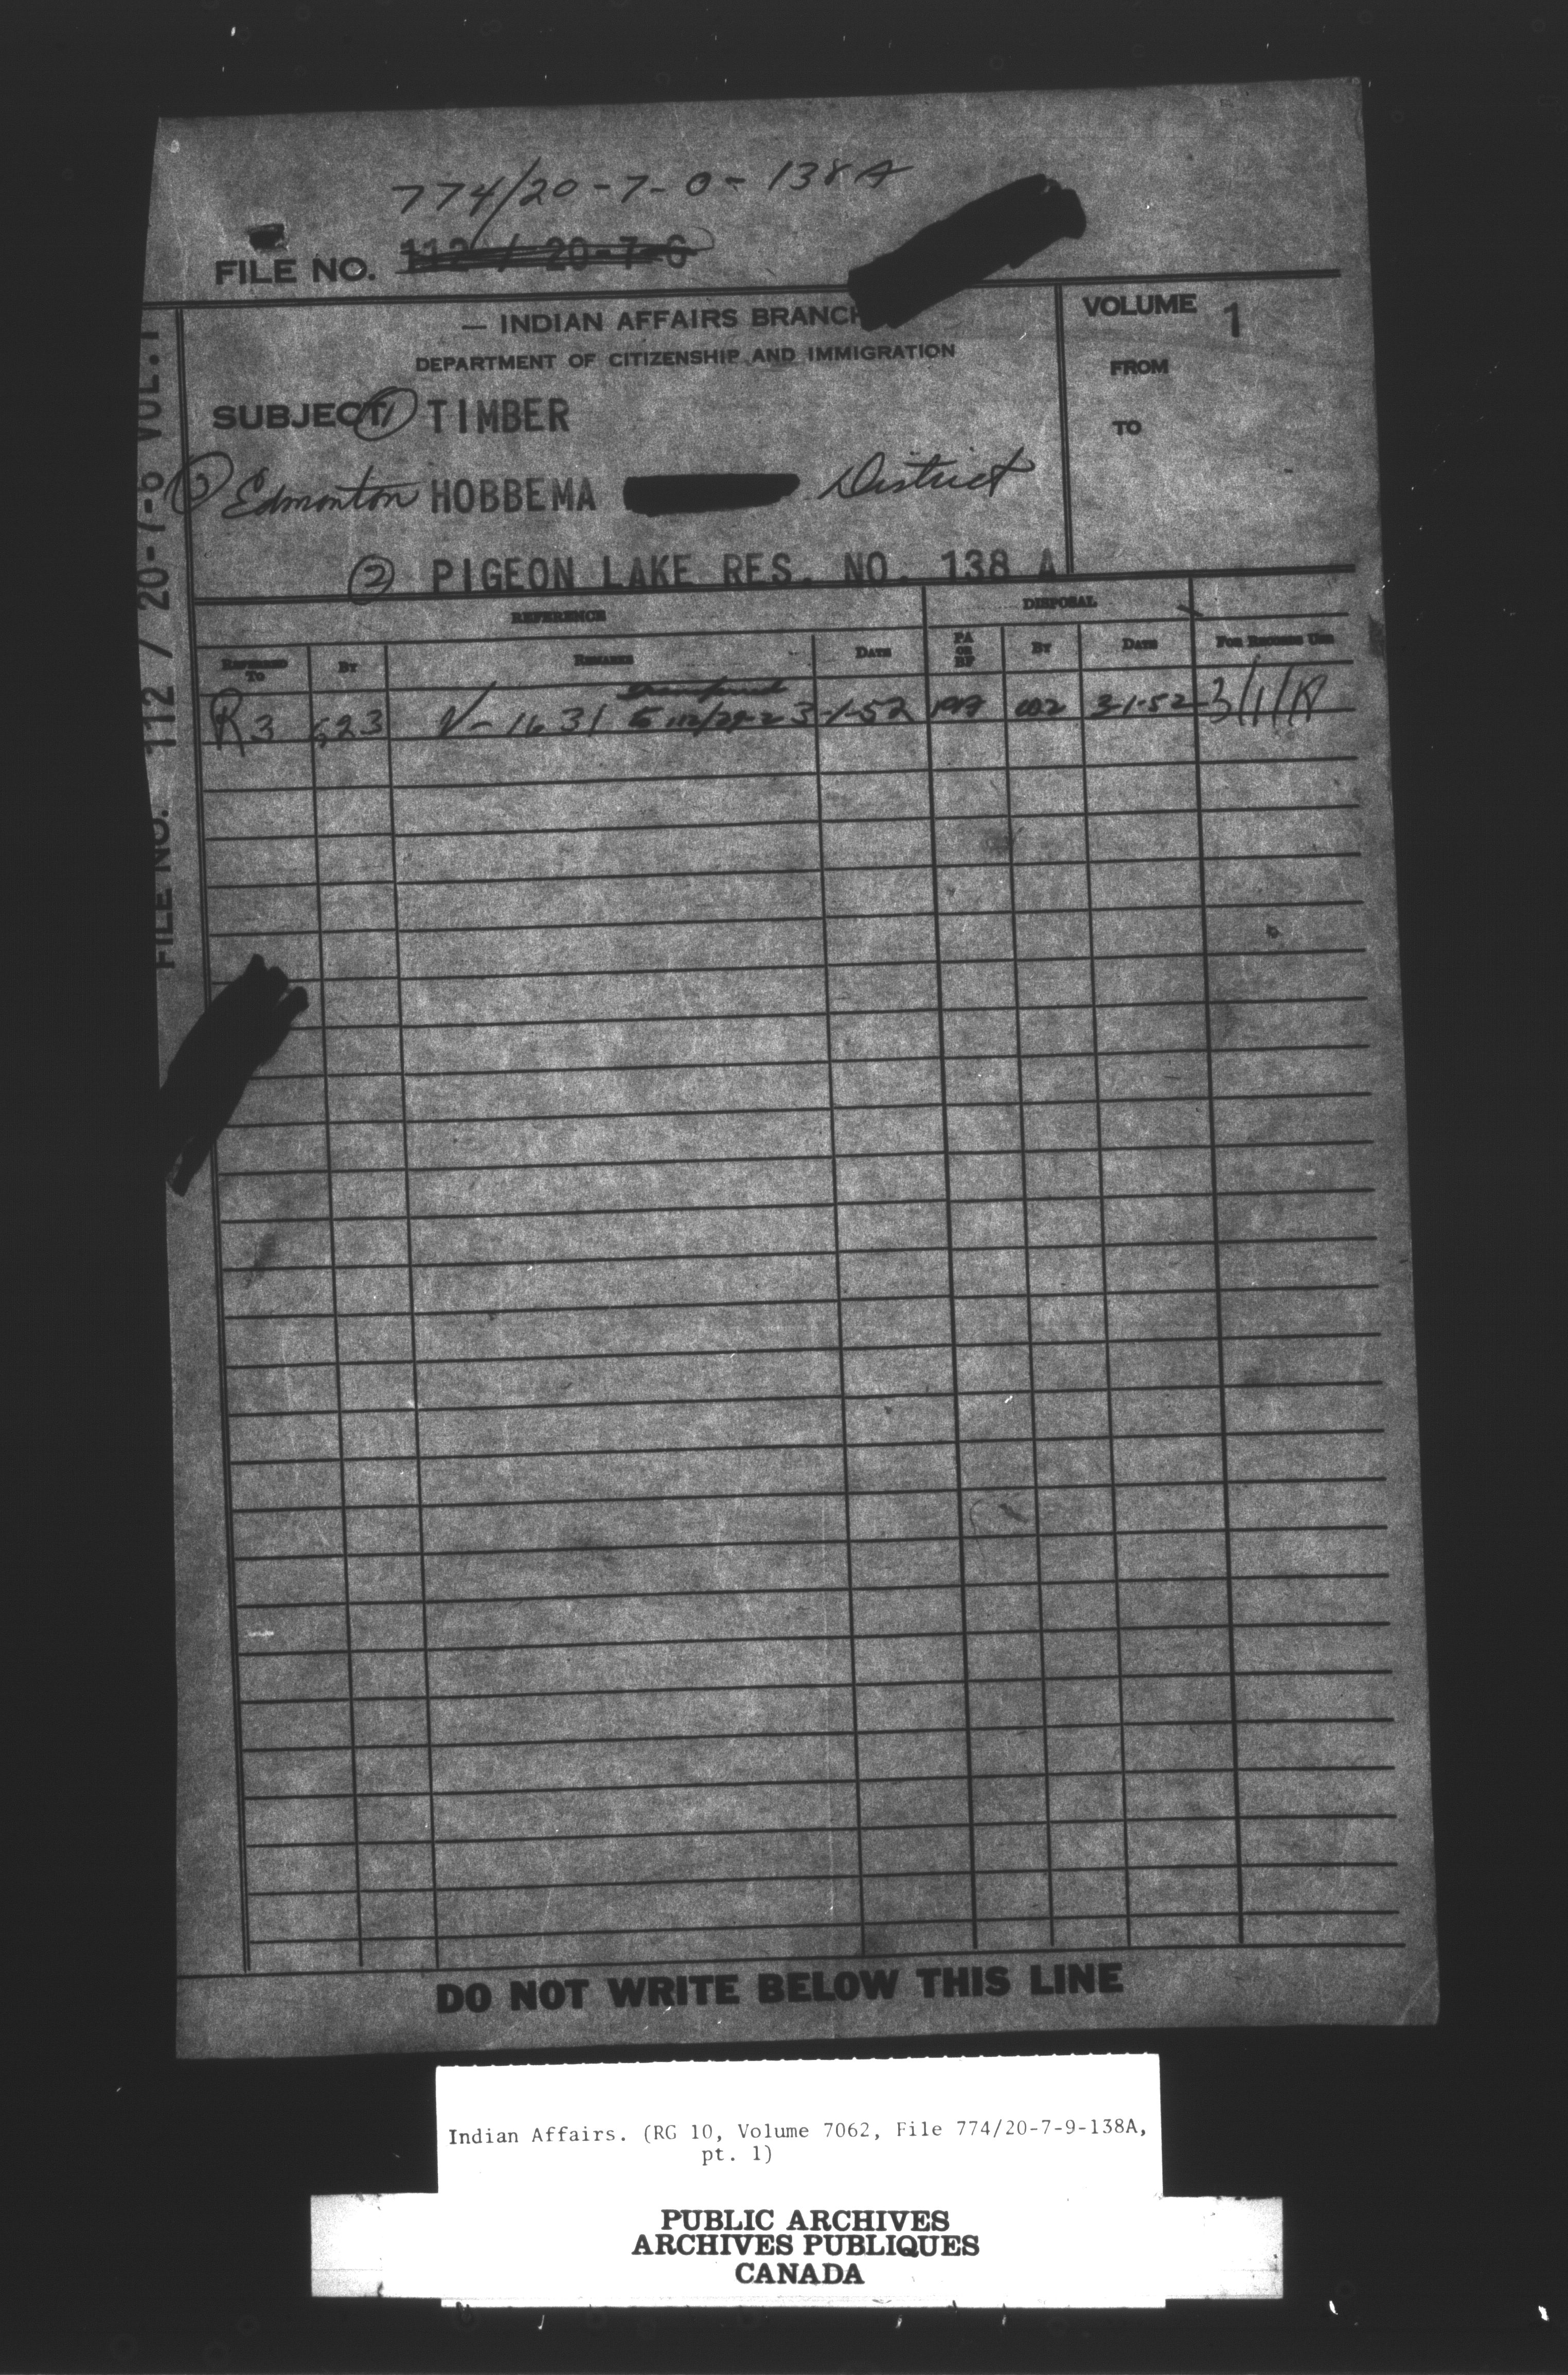 774/20-7-0-138A
FILE NO. 112 / 20-7-6
— INDIAN AFFAIRS BRANCH
DEPARTMENT OF CITIZENSHIP AND IMMIGRATION
VOLUME 1
FROM
TO
SUBJECT ① TIMBER
③ Edmonton HOBBEMA District
② PIGEON LAKE RES. NO. 138 A
FILE NO. 112 / 20-7-6 VOL. 1
REFERENCE DISPOSAL
REFERRED TO BY REMARKS DATE PA OR BF BY DATE FOR RECORDS USE
transferred
R3 623 V-1631 to 112/29-2 3-1-52 3-1-52
DO NOT WRITE BELOW THIS LINE
Indian Affairs. (RG 10, Volume 7062, File 774/20-7-9-138A,
pt. 1)
PUBLIC ARCHIVES
ARCHIVES PUBLIQUES
CANADA